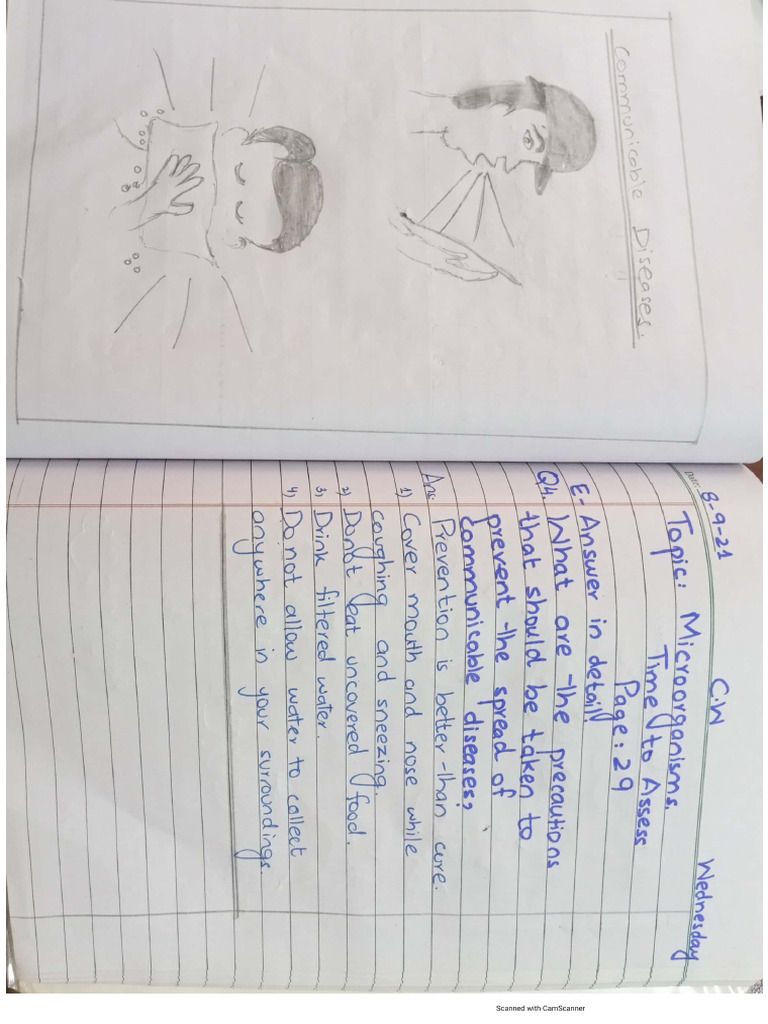 Communicable Diseases.
DATE: 8-9-21
C.W
Wednesday
Topic: Microorganisms.
Time to Assess
Page: 29
E- Answer in detail!
Q4. What are the precautions
that should be taken to
prevent the spread of
communicable diseases?
Ans: Prevention is better than cure.
1) Cover mouth and nose while
coughing and sneezing.
2) Donot eat uncovered food.
3) Drink filtered water.
4) Do not allow water to collect
anywhere in your surroundings.
Scanned with CamScanner